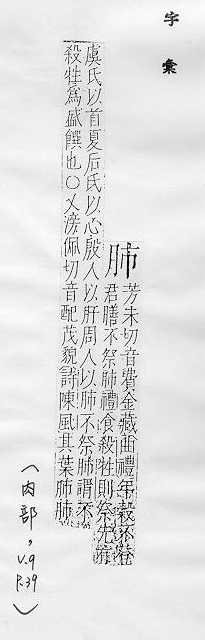 字彙
肺
芳未切音費金藏曲禮年穀不登
君膳不祭肺禮食殺牲則祭先有
虞氏以首夏后氏以心殷人以肝周人以肺不祭肺謂不
殺牲為盛饌也○又滂佩切音配茂貌詩陳風其葉肺肺
(肉部,V.9
P.39)